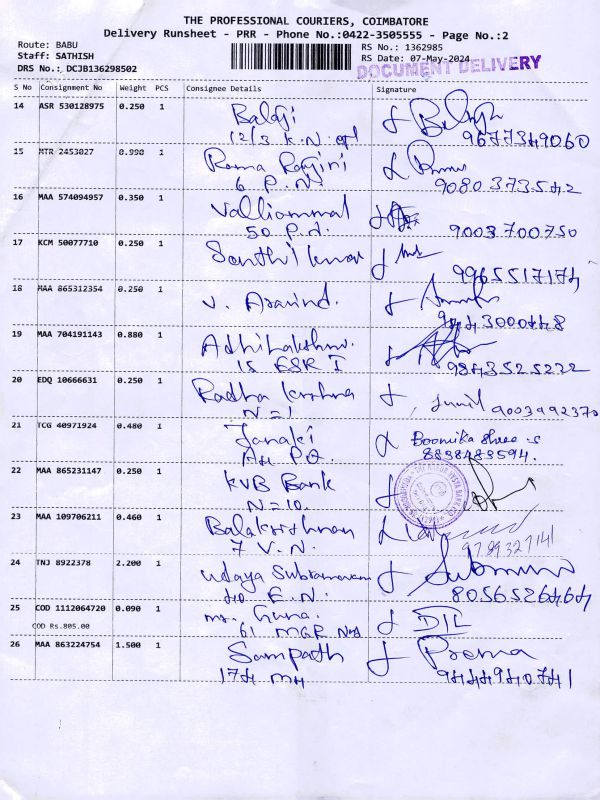 THE PROFESSIONAL COURIERS, COIMBATORE
Delivery Runsheet - PRR - Phone No.:0422-3505555 - Page No.:2
Route: BABU
Staff: SATHISH
DRS No.: DCJB136298502
RS No.: 1362985
RS Date: 07-May-2024
DOCUMENT DELIVERY
S No Consignment No Weight PCS Consignee Details Signature
14 ASR 530128975 0.250 1 Balaji
12/3 K.N.
9677349060
15 MTR 2453027 0.990 1 Rama Ragini
6 P.N
9080373542
16 MAA 574094957 0.350 1 Valliammal
50 P.d.
9003700750
17 KCM 50077710 0.250 1 Senthil kumar
9965517174
18 MAA 865312354 0.250 1 V. Aravind.
19 MAA 704191143 0.880 1 Adhilakshmi.
15 ESR I
9843525222
20 EDQ 10666631 0.250 1 Radha krishna
N=1
Sunil 9003992370
21 TCG 40971924 0.480 1 Janaki
A4 P.O.
Boomika Shree s
8838483594.
22 MAA 865231147 0.250 1 KVB Bank
N=10.
23 MAA 109706211 0.460 1 Balakrishnan
7 V.N.
9789327141
24 TNJ 8922378 2.200 1 Udaya Subramaniam
40 E.N.
8056526464
25 COD 1112064720 0.090 1 Mr. Guna.
COD Rs.805.00
61 MGR
26 MAA 863224754 1.500 1 Sampath
174 MH
Prema
9444940741